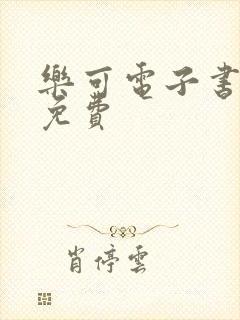 樂可電子書
免費
肖停雲